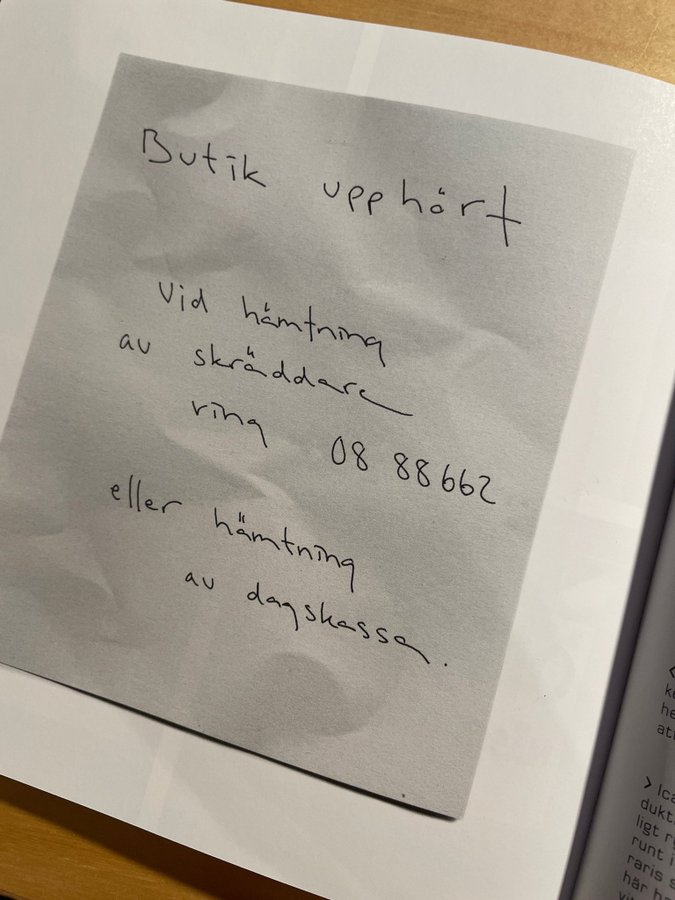 Butik upphört
Vid hämtning
av skräddare
ring 08 88662
eller hämtning
av dagskassa.
> Ica
dukt
ligt r
runt i
raris s
här ha